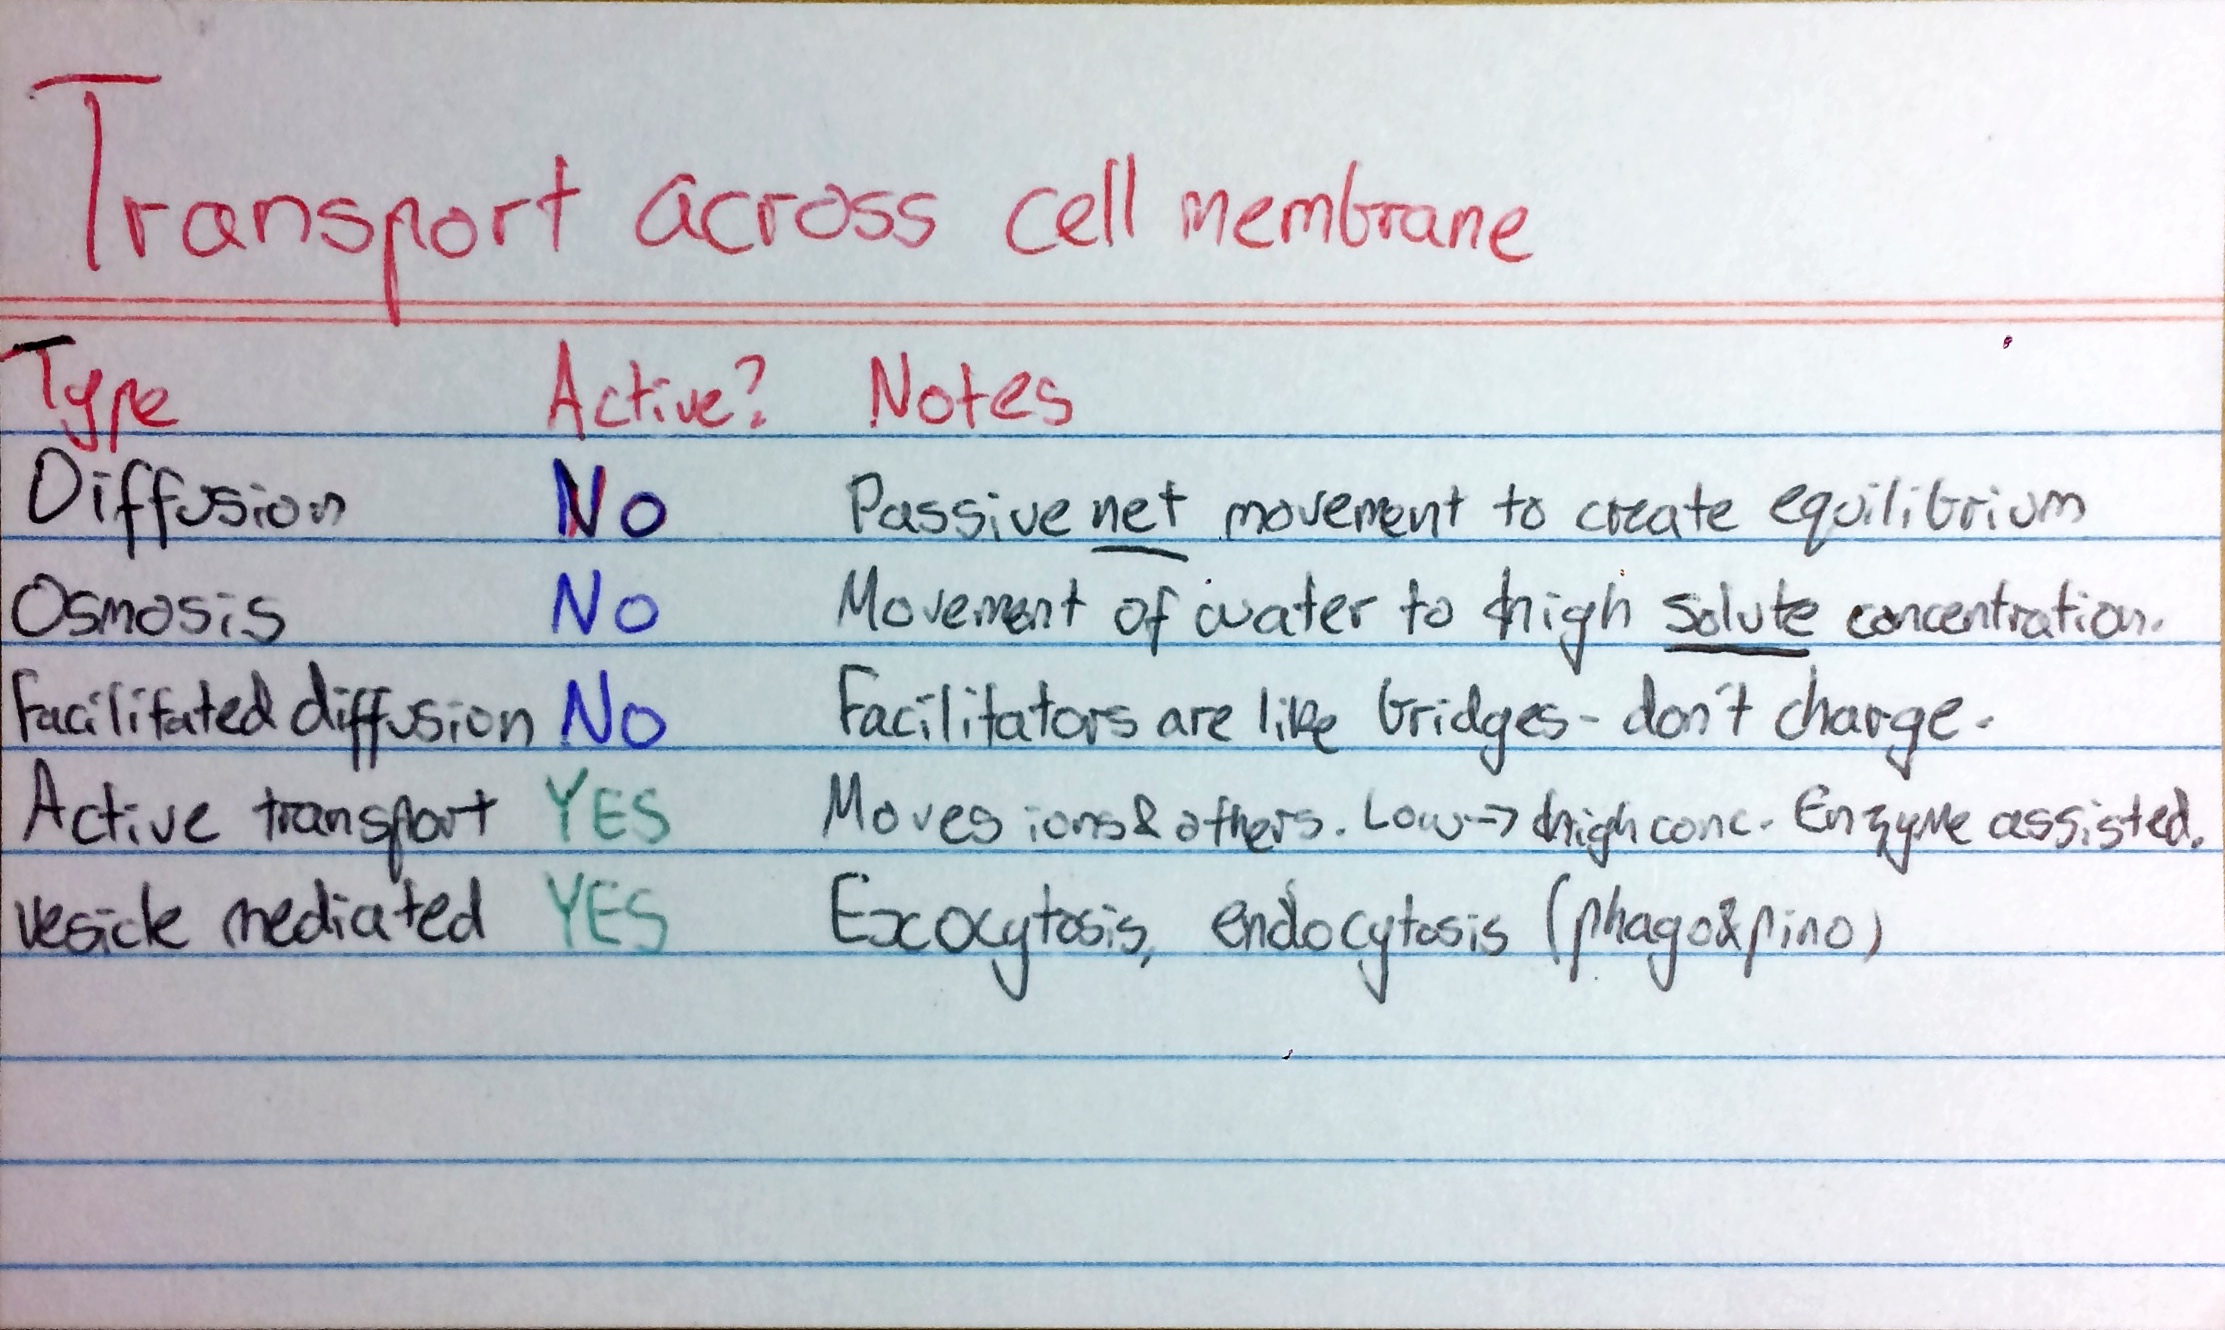 Transport across cell membrane
Type Active? Notes
Diffusion No Passive net movement to create equilibrium
Osmosis No Movement of water to high solute concentration.
Facilitated diffusion No Facilitators are like bridges - don't charge.
Active transport YES Moves ions & others. Low → high conc. Enzyme assisted.
vesicle mediated YES Exocytosis, endocytosis (phago & pino)